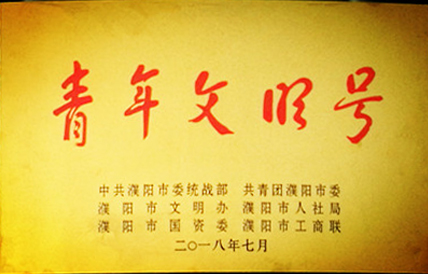 青年文明号
中共濮阳市委统战部 共青团濮阳市委
濮阳市文明办 濮阳市人社局
濮阳市国资委 濮阳市工商联
二〇一八年七月